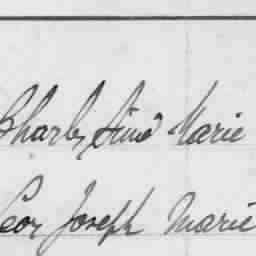 Charles Aimé Marie
Leon Joseph Marie